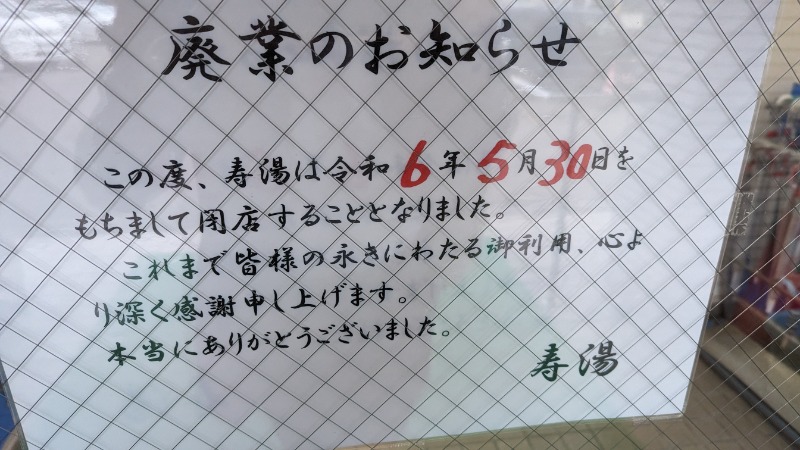 廃業のお知らせ
この度、寿湯は令和6年5月30日を
もちまして閉店することとなりました。
これまで皆様の永きにわたる御利用、心よ
り深く感謝申し上げます。
本当にありがとうございました。
寿湯